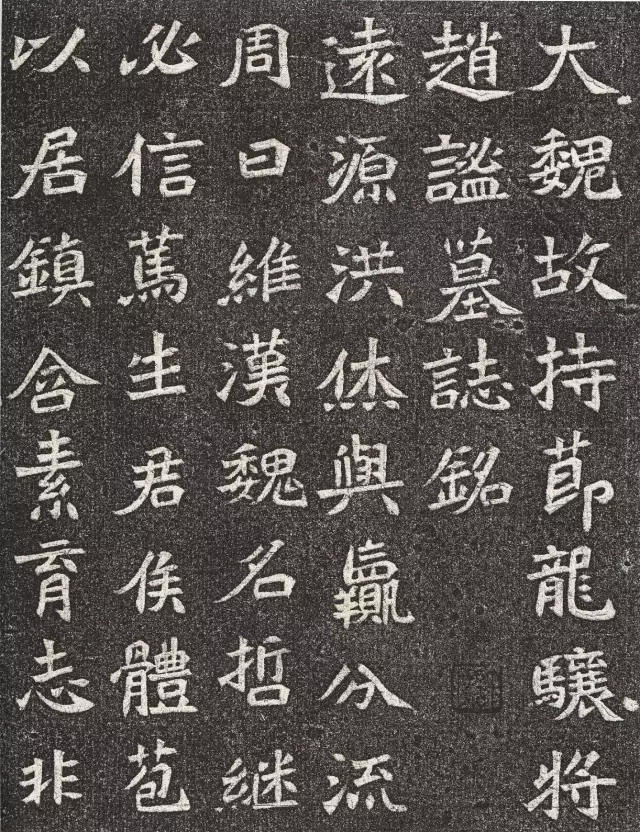 大魏故持莭龍驤將
趙謐墓誌銘
遠源洪烋與嬴分流
周曰維漢魏名哲継
必信萬生君侯體苞
以居鎮含素育志非